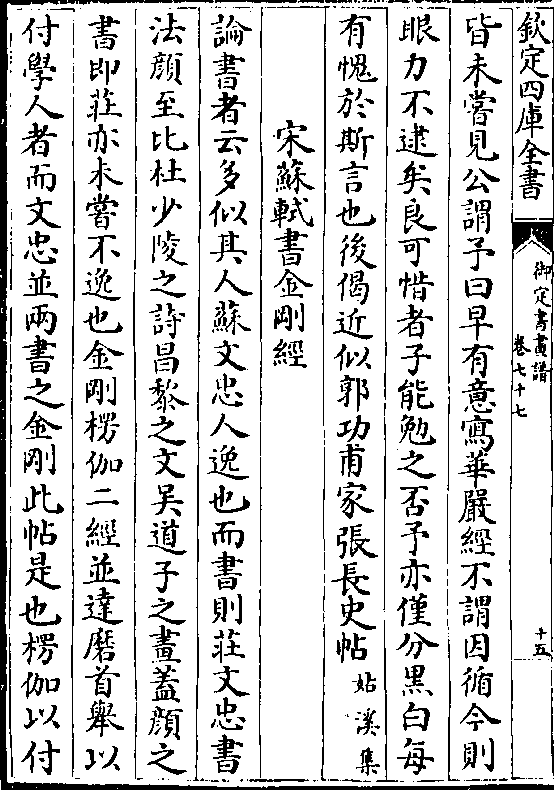 欽定四庫全書
御定書畫譜
卷七十七
十五
皆未嘗見公謂予曰早有意寫華嚴經不謂因循今則
眼力不逮矣良可惜者子能勉之否予亦僅分黑白每
有愧於斯言也後偈近似郭功甫家張長史帖姑溪集
宋蘇軾書金剛經
論書者云多似其人蘇文忠人逸也而書則莊文忠書
法顔至比杜少陵之詩昌黎之文吴道子之畫蓋顔之
書即莊亦未嘗不逸也金剛楞伽二經並達磨首舉以
付學人者而文忠並兩書之金剛此帖是也楞伽以付